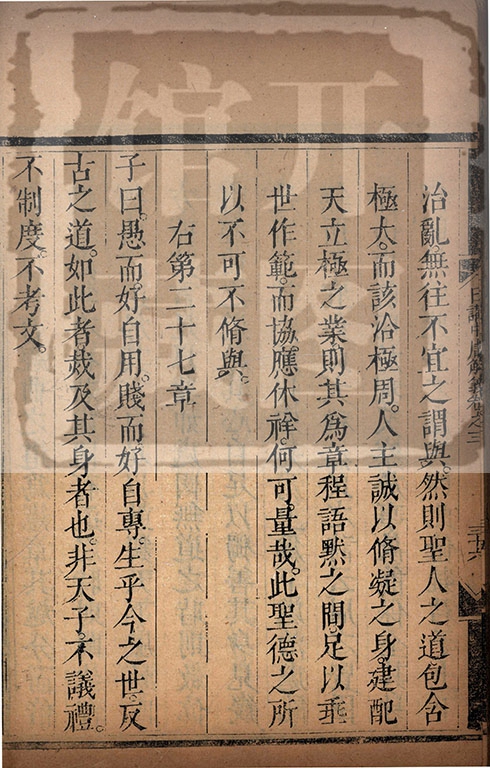 治亂無往不宜之謂與。然則聖人之道包含
極大。而該洽極周。人主誠以脩凝之身。建配
天立極之業則其為章程語默之間。足以垂
世作範。而協應休祥。何可量哉。此聖德之所
以不可不脩與。
右第二十七章
子曰。愚而好自用。賤而好自專。生乎今之世。反
古之道。如此者烖及其身者也。非天子。不議禮。
不制度。不考文。
三十六